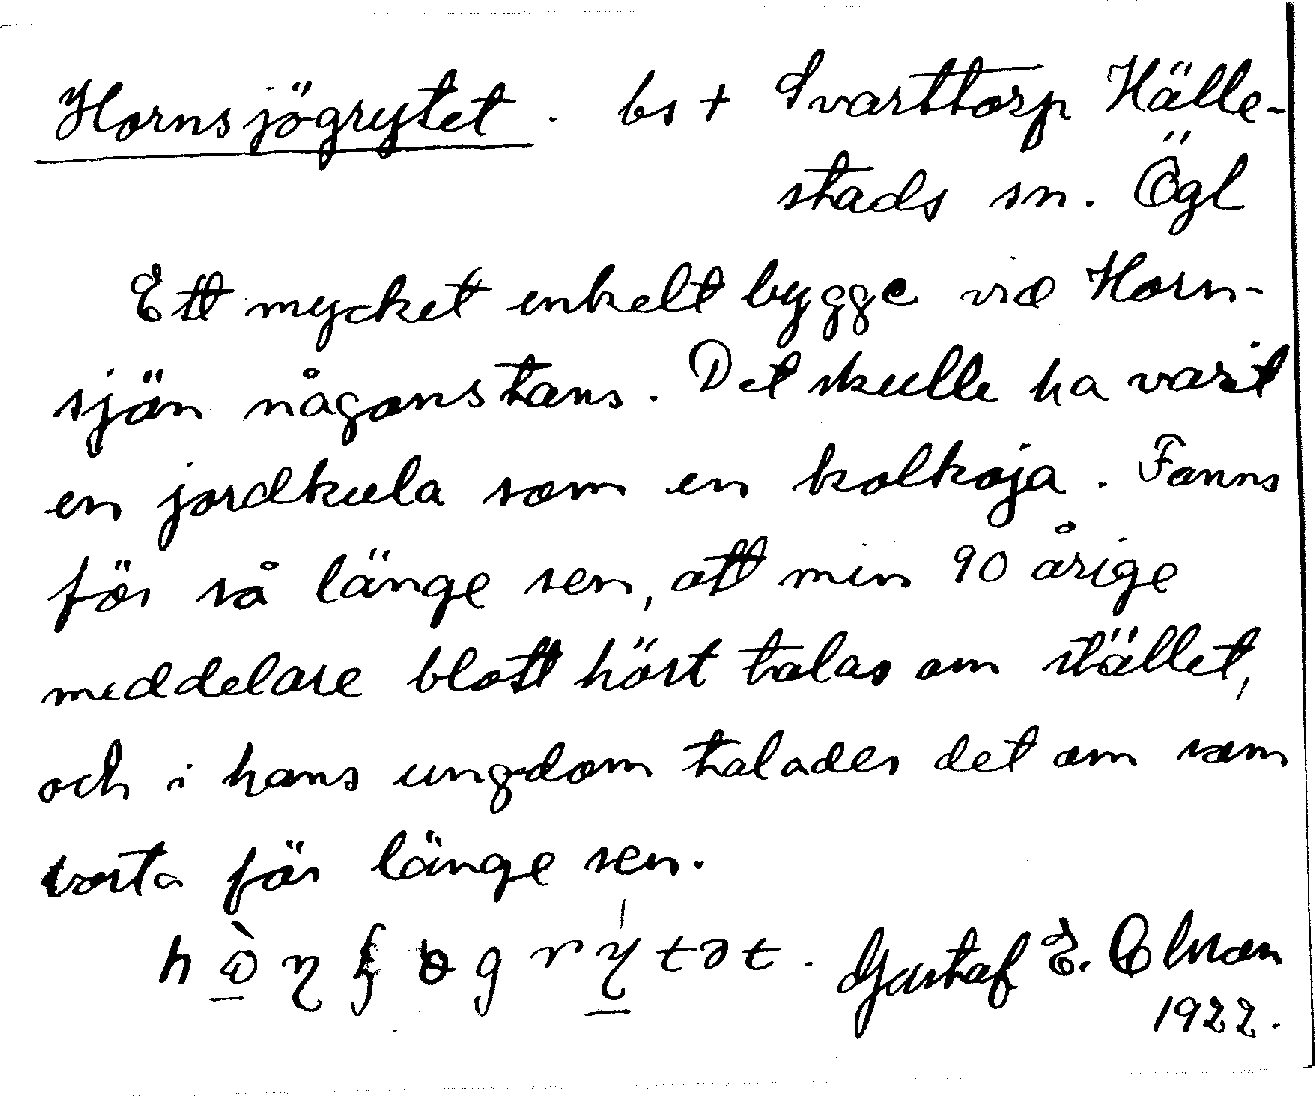 Hornsjögrytet. bs + Svarttorp Hälle-
stads sn. Ögl
Ett mycket enkelt bygge vid Horn-
sjön någonstans. Det skulle ha varit
en jordkula som en kolkoja. Fanns
för så länge sen, att min 90 årige
meddelare blott hört talas om stället,
och i hans ungdom talades det om som
borta för länge sen.
Gustaf E.
1922.